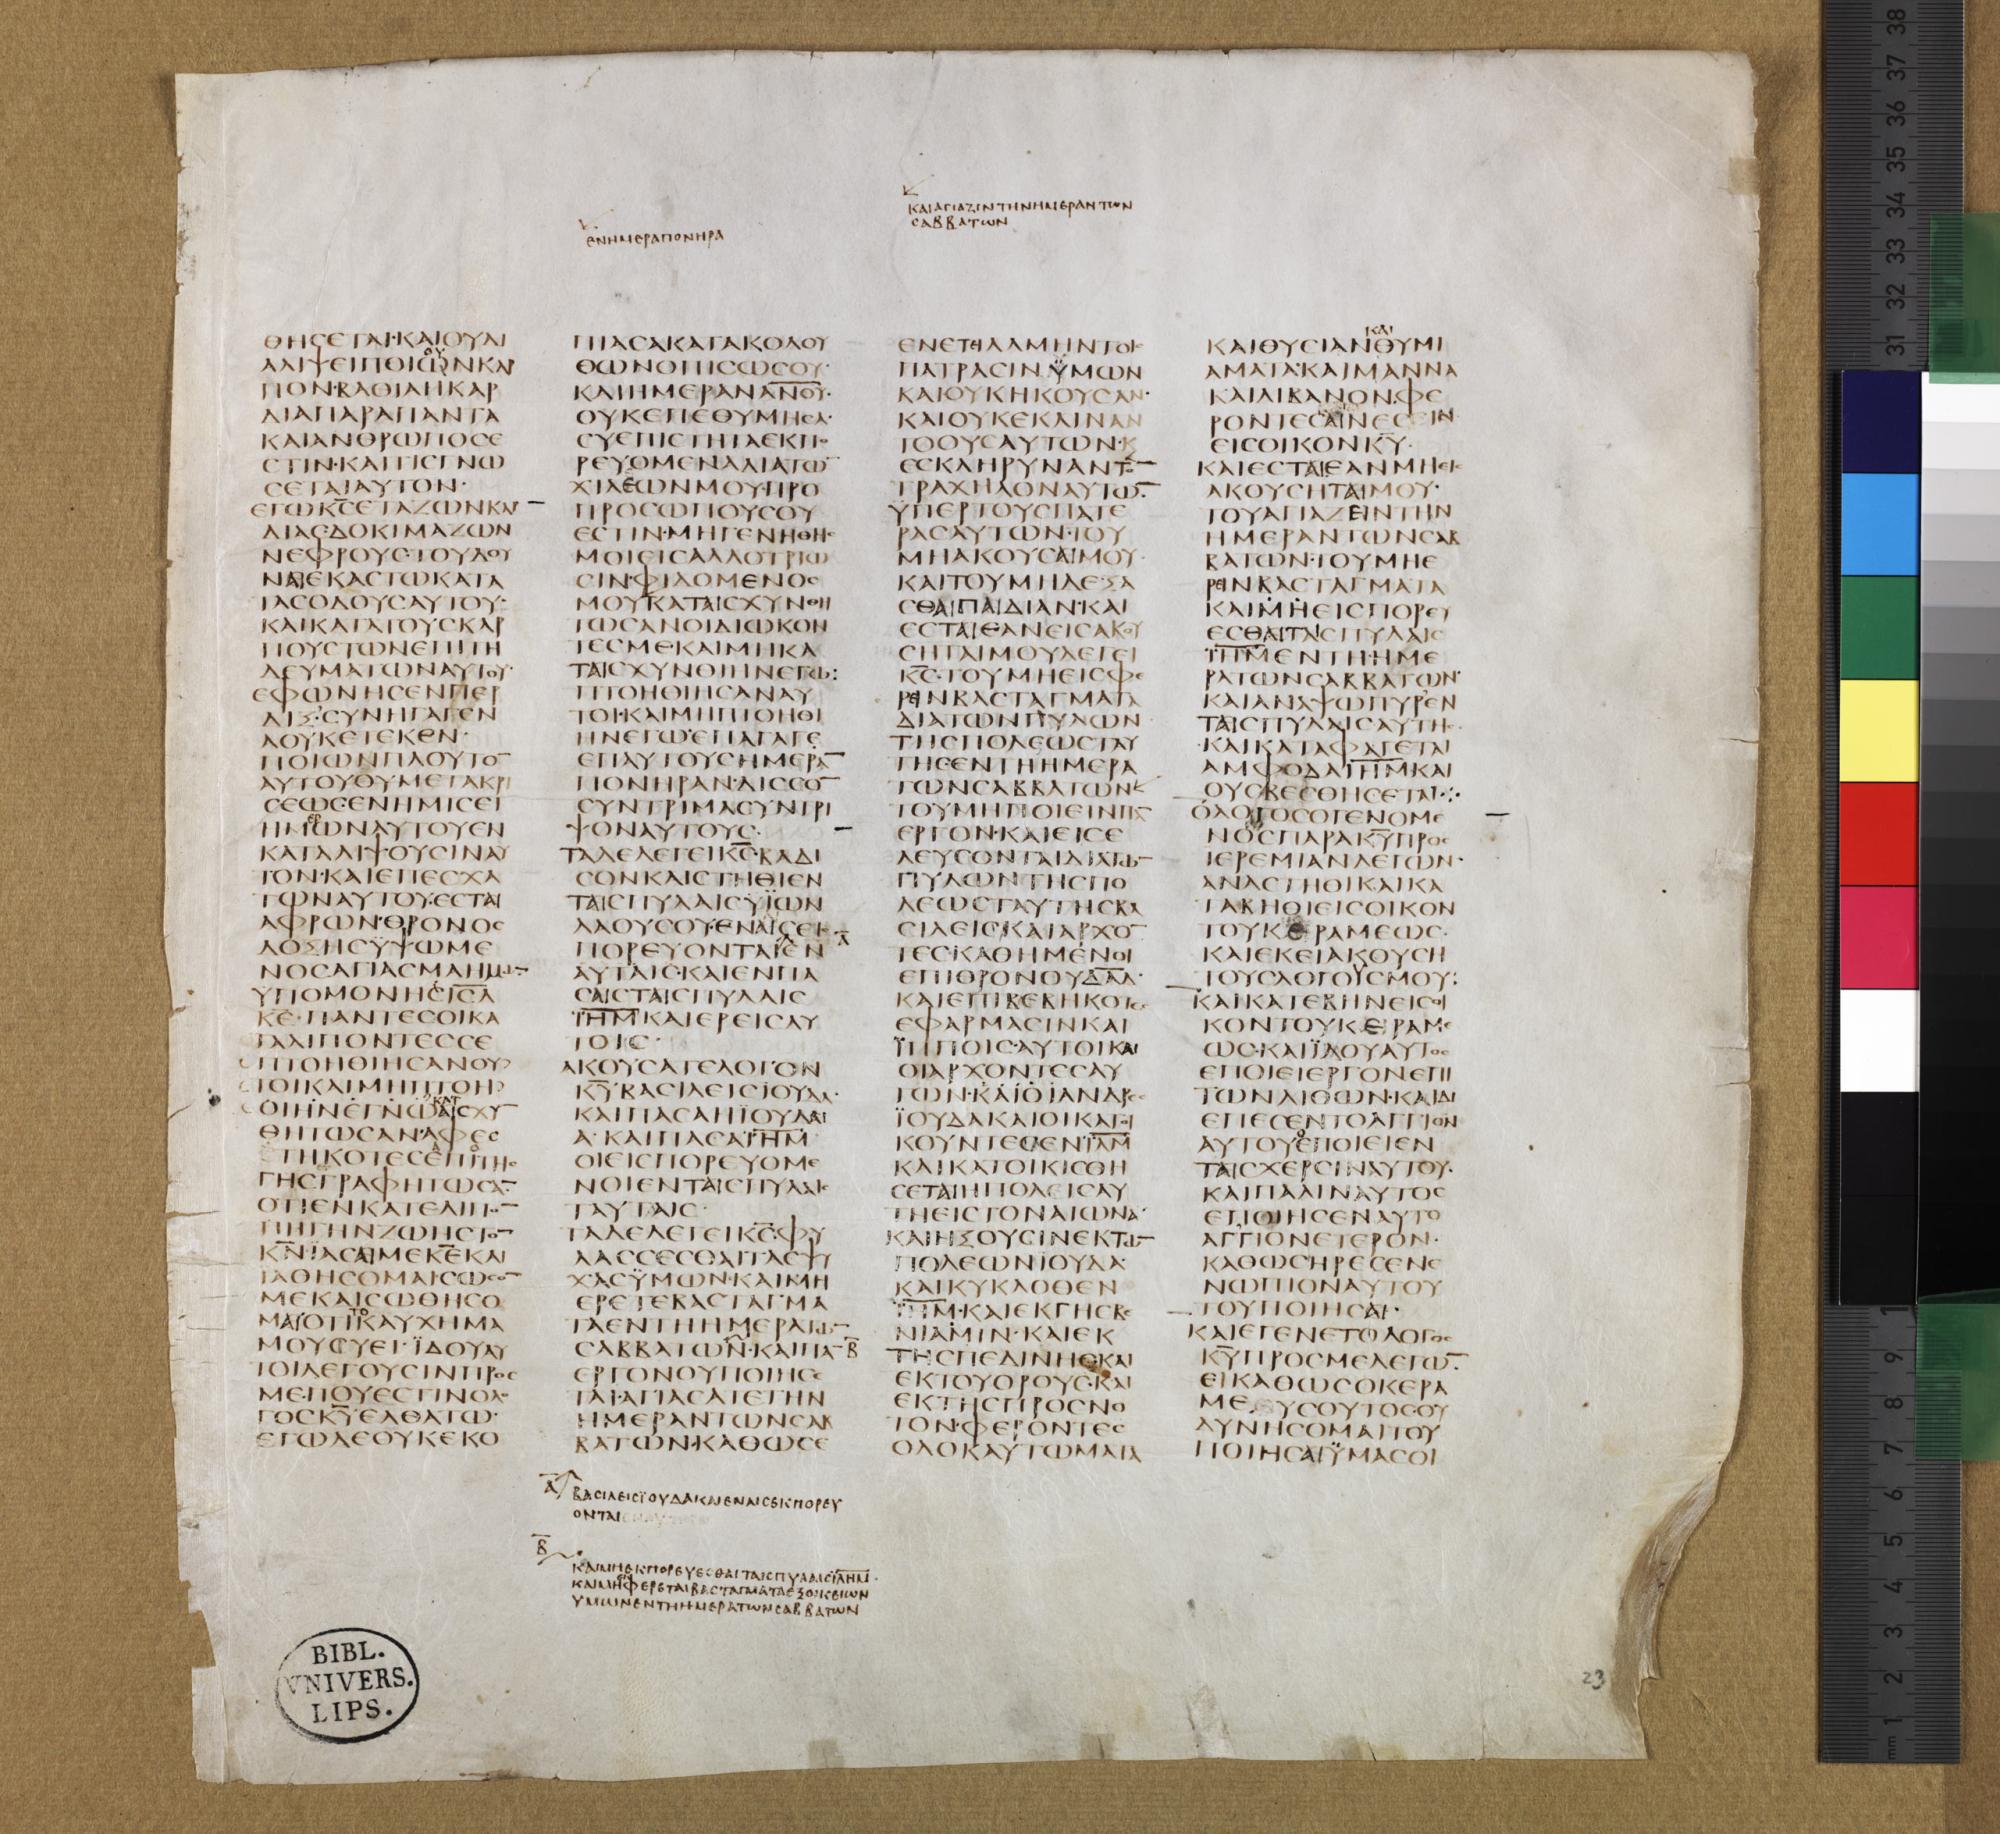 ΕΝΗΜΕΡΑΠΟΝΗΡΑ
ΚΑΙΑΓΙΑΖΙΝΤΗΝΗΜΕΡΑΝΤΩΝ
ϹΑΒΒΑΤΩΝ
ΘΗϹΕΤΑΙ·ΚΑΙΟΥΔΙ
ΑΛΙΨΕΙΠΟΙΩΝΚΑΡ
ΠΟΝ·ΒΑΘΙΑΗΚΑΡ
ΔΙΑΠΑΡΑΠΑΝΤΑ
ΚΑΙΑΝΘΡΩΠΟϹΕ
ϹΤΙΝ·ΚΑΙΤΙϹΓΝΩ
ϹΕΤΑΙΑΥΤΟΝ·
ΕΓΩΚ̅Ϲ̅ΕΤΑΖΩΝΚΑΡ
ΔΙΑϹΔΟΚΙΜΑΖΩΝ
ΝΕΦΡΟΥϹ·ΤΟΥΔΟΥ
ΝΑΙΕΚΑϹΤΩΚΑΤΑ
ΤΑϹΟΔΟΥϹΑΥΤΟΥ·
ΚΑΙΚΑΤΑΤΟΥϹΚΑΡ
ΠΟΥϹΤΩΝΕΠΙΤΗ
ΔΕΥΜΑΤΩΝΑΥΤΟΥ·
ΕΦΩΝΗϹΕΝΠΕΡ
ΔΙΞ·ϹΥΝΗΓΑΓΕΝ
ΑΟΥΚΕΤΕΚΕΝ·
ΠΟΙΩΝΠΛΟΥΤΟ̅
ΑΥΤΟΥΟΥΜΕΤΑΚΡΙ
ϹΕΩϹΕΝΗΜΙϹΕΙ
ΗΜΕΡΩΝΑΥΤΟΥΕΝ
ΚΑΤΑΛΙΨΟΥϹΙΝΑΥ
ΤΟΝ·ΚΑΙΕΠΕϹΧΑ
ΤΩΝΑΥΤΟΥ·ΕϹΤΑΙ
ΑΦΡΩΝ·ΘΡΟΝΟϹ
ΔΟΞΗϹΫΨΩΜΕ
ΝΟϹΑΓΙΑϹΜΑΗΜΩ̅
ΥΠΟΜΟΝΗΙ̅Ϲ̅Λ̅
Κ̅Ϲ̅·ΠΑΝΤΕϹΟΙΚΑ
ΤΑΛΙΠΟΝΤΕϹϹΕ
ΠΤΟΗΘΙΗϹΑΝΟΥ
ΤΟΙΚΑΙΜΗΠΤΟΗ
ΘΙΗΝΕΓΩΚΑΤΑΙϹΧΥ
ΘΗΤΩϹΑΝ·ΑΦΕϹ
ΤΗΚΟΤΕϹΕΠΙΤΗϹ
ΓΗϹΓΡΑΦΗΤΩϹΑ̅
ΟΤΙΕΝΚΑΤΕΛΙΠΟ̅
ΠΗΓΗΝΖΩΗϹΤΟ̅
Κ̅Ν̅·ΙΑϹΑΙΜΕΚ̅Ε̅ΚΑΙ
ΙΑΘΗϹΟΜΑΙϹΩϹΟ̅
ΜΕΚΑΙϹΩΘΗϹΟ
ΜΑΙΟΤΙΤΟΚΑΥΧΗΜΑ
ΜΟΥϹΥΕΙ·ΪΔΟΥΑΥ
ΤΟΙΛΕΓΟΥϹΙΝΠΡΟϹ
ΜΕ·ΠΟΥΕϹΤΙΝΟΛΟ
ΓΟϹΚ̅Υ̅·ΕΛΘΑΤΩ·
ΕΓΩΔΕΟΥΚΕΚΟ
ΠΙΑϹΑΚΑΤΑΚΟΛΟΥ
ΘΩΝΟΠΙϹΩϹΟΥ·
ΚΑΙΗΜΕΡΑΝΑ̅Ν̅Ο̅Υ̅·
ΟΥΚΕΠΕΘΥΜΗϹΑ·
ϹΥΕΠΙϹΤΗΤΑΕΚΠΟ
ΡΕΥΟΜΕΝΑΔΙΑΤΩ̅
ΧΙΛΕΩΝΜΟΥ·ΠΡΟ
ΠΡΟϹΩΠΟΥϹΟΥ
ΕϹΤΙΝ·ΜΗΓΕΝΗΘΗϹ
ΜΟΙΕΙϹΑΛΛΟΤΡΙΩ
ϹΙΝ·ΦΙΔΟΜΕΝΟϹ
ΜΟΥΚΑΤΑΙϹΧΥΝΘΗ
ΤΩϹΑΝΟΙΔΙΩΚΟΝ
ΤΕϹΜΕ·ΚΑΙΜΗΚΑ
ΤΑΙϹΧΥΝΘΙΗΝΕΓΩ:
ΠΤΟΗΘΙΗϹΑΝΑΥ
ΤΟΙ·ΚΑΙΜΗΠΤΟΗΘΙ
ΗΝΕΓΩ·ΕΠΑΓΑΓΕ
ΕΠΑΥΤΟΥϹΗΜΕΡΑ̅
ΠΟΝΗΡΑΝ·ΔΙϹϹΟ̅
ϹΥΝΤΡΙΜΑϹΥΝΤΡΙ
ΨΟΝΑΥΤΟΥϹ·
ΤΑΔΕΛΕΓΕΙΚ̅Ϲ̅·ΒΑΔΙ
ϹΟΝΚΑΙϹΤΗΘΙΕΝ
ΤΑΙϹΠΥΛΑΙϹΫΪΩΝ
ΛΑΟΥϹΟΥ·ΕΝΑΙϹΕΙϹ
ΠΟΡΕΥΟΝΤΑΙΕΝ
ΑΥΤΑΙϹ·ΚΑΙΕΝΠΑ
ϹΑΙϹΤΑΙϹΠΥΛΑΙϹ
Ι̅Η̅Μ̅ΚΑΙΕΡΕΙϹΑΥ
ΤΟΙϹ·
ΑΚΟΥϹΑΤΕΛΟΓΟΝ
Κ̅Υ̅·ΒΑϹΙΛΕΙϹΙΟΥΔΑ·
ΚΑΙΠΑϹΑΗΪΟΥΔΑΙ
Α·ΚΑΙΠΑϹΑΪ̅Η̅Μ̅
ΟΙΕΙϹΠΟΡΕΥΟΜΕ
ΝΟΙΕΝΤΑΙϹΠΥΛΑΙϹ
ΤΑΥΤΑΙϹ·
ΤΑΔΕΛΕΓΕΙΚ̅Ϲ̅·ΦΥ
ΛΑϹϹΕϹΘΑΙΤΑϹΨΥ
ΧΑϹΫΜΩΝ·ΚΑΙΜΗ
ΕΡΕΤΕΒΑϹΤΑΓΜΑ
ΤΑΕΝΤΗΗΜΕΡΑΤΩ̅
ϹΑΒΒΑΤΩΝ·ΚΑΙΠΑ̅
ΕΡΓΟΝΟΥΠΟΙΗϹΕ
ΤΑΙ·ΑΓΙΑϹΑΤΕΤΗΝ
ΗΜΕΡΑΝΤΩΝϹΑΒ
ΒΑΤΩΝ·ΚΑΘΩϹΕ
ΕΝΕΤΙΛΑΜΗΝΤΟΙϹ
ΠΑΤΡΑϹΙΝΫΜΩΝ
ΚΑΙΟΥΚΗΚΟΥϹΑΝ·
ΚΑΙΟΥΚΕΚΛΙΝΑΝ
ΤΟΟΥϹΑΥΤΩΝ·Κ
ΕϹΚΛΗΡΥΝΑΝΤΟ̅
ΤΡΑΧΗΛΟΝΑΥΤΩ̅·
ΫΠΕΡΤΟΥϹΠΑΤΕ
ΡΑϹΑΥΤΩΝ·ΤΟΥ
ΜΗΑΚΟΥϹΑΙΜΟΥ·
ΚΑΙΤΟΥΜΗΔΕΞΑ
ϹΘΑΙΠΑΙΔΙΑΝ·ΚΑΙ
ΕϹΤΑΙΕΑΝΕΙϹΑΚΟΥ
ϹΗΤΑΙΜΟΥΛΕΓΕΙ
Κ̅Ϲ̅·ΤΟΥΜΗΕΙϹΦΕ
ΡΕΙΝΒΑϹΤΑΓΜΑΤΑ
ΔΙΑΤΩΝΠΥΛΩΝ
ΤΗϹΠΟΛΕΩϹΤΑΥ
ΤΗϹΕΝΤΗΗΜΕΡΑ
ΤΩΝϹΑΒΒΑΤΩΝ
ΤΟΥΜΗΠΟΙΕΙΝΠΑ̅
ΕΡΓΟΝ·ΚΑΙΕΙϹΕ
ΛΕΥϹΟΝΤΑΙΔΙΑΤΩ̅
ΠΥΛΩΝΤΗϹΠΟ
ΛΕΩϹΤΑΥΤΗϹΒΑ
ϹΙΛΕΙϹΚΑΙΑΡΧΟ̅
ΤΕϹ·ΚΑΘΗΜΕΝΟΙ
ΕΠΙΘΡΟΝΟΥΔ̅Α̅Δ̅·
ΚΑΙΕΠΙΒΕΒΗΚΟΤΕϹ
ΕΦΑΡΜΑϹΙΝΚΑΙ
ΪΠΠΟΙϹ·ΑΥΤΟΙΚΑΙ
ΟΙΑΡΧΟΝΤΕϹΑΥ
ΤΩΝ·ΚΑΙΟΙΑΝΔΡΕϹ
ΪΟΥΔΑΚΑΙΟΙΚΑΤΟΙ
ΚΟΥΝΤΕϹΕΝΪ̅Λ̅Μ̅
ΚΑΙΚΑΤΟΙΚΙϹΘΗ
ϹΕΤΑΙΗΠΟΛΕΙϹΑΥ
ΤΗΕΙϹΤΟΝΑΙΩΝΑ·
ΚΑΙΗΞΟΥϹΙΝΕΚΤΩ̅
ΠΟΛΕΩΝΙΟΥΔΑ·
ΚΑΙΚΥΚΛΟΘΕΝ
Ι̅Η̅Μ̅·ΚΑΙΕΚΓΗϹΒΕ
ΝΙΑΜΙΝ·ΚΑΙΕΚ
ΤΗϹΠΕΔΙΝΗϹΚΑΙ
ΕΚΤΟΥΟΡΟΥϹ·ΚΑΙ
ΕΚΤΗϹΠΡΟϹΝΟ
ΤΟΝ·ΦΕΡΟΝΤΕϹ
ΟΛΟΚΑΥΤΩΜΑΤΑ
ΚΑΙΘΥϹΙΑΝΚΑΙΘΥΜΙ
ΑΜΑΤΑ·ΚΑΙΜΑΝΝΑ
ΚΑΙΛΙΒΑΝΟΝ·ΦΕ
ΡΟΝΤΕϹΑΙΝΕϹΕΙΝ
ΕΙϹΟΙΚΟΝΚ̅Υ̅·
ΚΑΙΕϹΤΑΙΕΑΝΜΗΕΙϹ
ΑΚΟΥϹΗΤΑΙΜΟΥ·
ΤΟΥΑΓΙΑΖΕΙΝΤΗΝ
ΗΜΕΡΑΝΤΩΝϹΑΒ
ΒΑΤΩΝ·ΤΟΥΜΗΕ
ΡΕΙΝΒΑϹΤΑΓΜΑΤΑ
ΚΑΙΜΗΕΙϹΠΟΡΕΥ
ΕϹΘΑΙΤΑϹΠΥΛΑΙϹ
Ι̅Η̅Μ̅ΕΝΤΗΗΜΕ
ΡΑΤΩΝϹΑΒΒΑΤΩΝ·
ΚΑΙΑΝΑΨΩΠΥΡΕΝ
ΤΑΙϹΠΥΛΑΙϹΑΥΤΗϹ·
ΚΑΙΚΑΤΑΦΑΓΕΤΑΙ
ΑΜΦΟΔΑΙ̅Η̅Μ̅ΚΑΙ
ΟΥϹΒΕϹΘΗϹΕΤΑΙ·:·
ΟΛΟΓΟϹΟΓΕΝΟΜΕ
ΝΟϹΠΑΡΑΚ̅Υ̅ΠΡΟϹ
ΙΕΡΕΜΙΑΝΛΕΓΩΝ·
ΑΝΑϹΤΗΘΙΚΑΙΚΑ
ΤΑΒΗΘΙΕΙϹΟΙΚΟΝ
ΤΟΥΚΕΡΑΜΕΩϹ·
ΚΑΙΕΚΕΙΑΚΟΥϹΗ
ΤΟΥϹΛΟΓΟΥϹΜΟΥ:
ΚΑΙΚΑΤΕΒΗΝΕΙϹΟΙ
ΚΟΝΤΟΥΚΕΡΑΜΕ
ΩϹ·ΚΑΙΪΔΟΥΑΥΤΟϹ
ΕΠΟΙΕΙΕΡΓΟΝΕΠΙ
ΤΩΝΛΙΘΩΝ·ΚΑΙΔΙ
ΕΠΕϹΕΝΤΟΑΓΓΙΟΝ
ΑΥΤΟΥΟΕΠΟΙΕΙΕΝ
ΤΑΙϹΧΕΡϹΙΝΑΥΤΟΥ·
ΚΑΙΠΑΛΙΝΑΥΤΟϹ
ΕΠΟΙΗϹΕΝΑΥΤΟ
ΑΓΓΙΟΝΕΤΕΡΟΝ·
ΚΑΘΩϹΗΡΕϹΕΝΕ
ΝΩΠΙΟΝΑΥΤΟΥ
ΤΟΥΠΟΙΗϹΑΙ·
ΚΑΙΕΓΕΝΕΤΟΛΟΓΟϹ
Κ̅Υ̅ΠΡΟϹΜΕΛΕΓΩ̅·
ΕΙΚΑΘΩϹΟΚΕΡΑ
ΜΕΥϹΟΥΤΟϹΟΥ
ΔΥΝΗϹΟΜΑΙΤΟΥ
ΠΟΙΗϹΑΙΫΜΑϹΟΙ
Α̅ ΒΑϹΙΛΕΙϹΪΟΥΔΑΚΑΙΕΝΑΙϹΕΚΠΟΡΕΥ
ΟΝΤΑΙ
Β̅ ΚΑΙΜΗΕΚΠΟΡΕΥΕϹΘΑΙΤΑΙϹΠΥΛΑΙϹΙ̅Λ̅Η̅Μ̅·
ΚΑΙΜΗΕΚΦΕΡΕΤΑΙΒΑϹΤΑΓΜΑΤΑΕΞΟΙΚΕΙΩΝ
ΥΜΩΝΕΝΤΗΗΜΕΡΑΤΩΝϹΑΒΒΑΤΩΝ
BIBL.
VNIVERS.
LIPS.
23